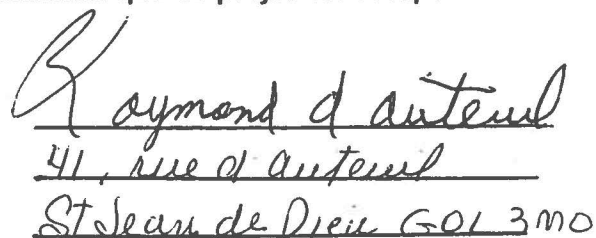 Raymond d auteuil
41, rue d auteuil
St Jean de Dieu G0L 3M0